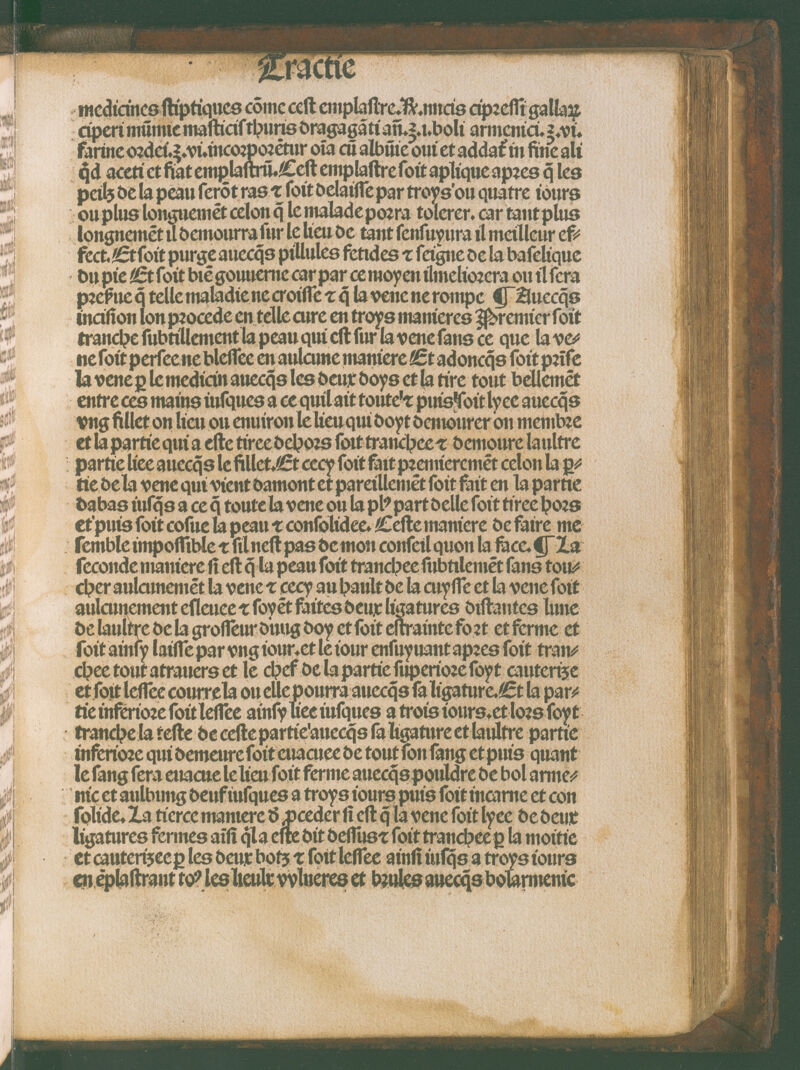 Tractie
medicines stiptiques cõme cest emplastre. ℞. nucis cipressi gallaꝝ
ciperi mũmie masticis thuris dragagãti añ.ʒ.i. boli armenici.ʒ.vi.
farine ordei.ʒ.vi.incorporẽtur oĩa cũ albũie oui et addat̃ in fine ali
q̃d aceti et fiat emplastrũ. Cest emplastre soit aplique apres q̃ les
peilz de la peau serõt ras ⁊ soit delaisse par troys ou quatre iours
ou plus longuemẽt celon q̃ le malade porra tolerer. car tant plus
longnemẽt il demourra sur le lieu de tant sensuyura il meilleur ef⸗
fect. Et soit purge auecq̃s pillules fetides ⁊ seigne de la baselique
du pie Et soit biẽ gouuerne car par ce moyen il meliorera ou il sera
preſue q̃ telle maladie ne croisse ⁊ q̃ la vene ne rompe ¶ Auecq̃s
incision lon procede en telle cure en troys manieres Premier soit
tranche subtillement la peau qui est sur la vene sans ce que la ve⸗
ne soit persee ne blessee en aulcune maniere Et adoncq̃s soit prĩse
la vene ꝑ le medicin auecq̃s les deux doys et la tire tout bellemẽt
entre ces mains iusques a ce quil ait toute ⁊ puis soit lyee auecq̃s
vng fillet on lieu ou enuiron le lieu qui doyt demourer on membre
et la partie qui a este tiree dehors soit tranchee ⁊ demoure laultre
partie liee auecq̃s le fillet. Et cecy soit fait premieremẽt celon la ꝑ⸗
tie de la vene qui vient damont et pareillemẽt soit fait en la partie
dabas iusq̃s a ce q̃ toute la vene ou la plꝰ part delle soit tiree hors
et puis soit cosue la peau ⁊ consolidee. Ceste maniere de faire me
semble impossible ⁊ sil nest pas de mon conseil quon la face. ¶ La
seconde maniere si est q̃ la peau soit tranchee subtilemẽt sans tou⸗
cher aulcunemẽt la vene ⁊ cecy au hault de la cuysse et la vene soit
aulcunement esleuee ⁊ soyẽt faites deux ligatures distantes lune
de laultre de la grosseur dung doy et soit estrainte fort et ferme et
soit ainsy laisse par vng iour.et le iour ensuyuant apres soit tran⸗
chee tout atrauers et le chef de la partie superiore soyt cauterize
et soit lessee courre la ou elle pourra auecq̃s sa ligature. Et la par⸗
tie inferiore soit lessee ainsy liee iusques a trois iours.et lors soyt
tranche la teste de ceste partie auecq̃s sa ligature et laultre partie
inferiore qui demeure soit euacuee de tout son sang et puis quant
le sang sera euacue le lieu soit ferme auecq̃s pouldre de bol arme⸗
nic et aulbung deuf iusques a troys iours puis soit incarne et con
solide. La tierce maniere ð ꝓceder si est q̃ la vene soit lyee de deux
ligatures fermes aĩsi q̃la este dit dessus ⁊ soit tranchee ꝑ la moitie
et cauterizee ꝑ les deux botz ⁊ soit lessee ainsi iusq̃s a troys iours
en ẽplastrant toꝰ les lieulx vvlueres et brules auecq̃s bolarmenic